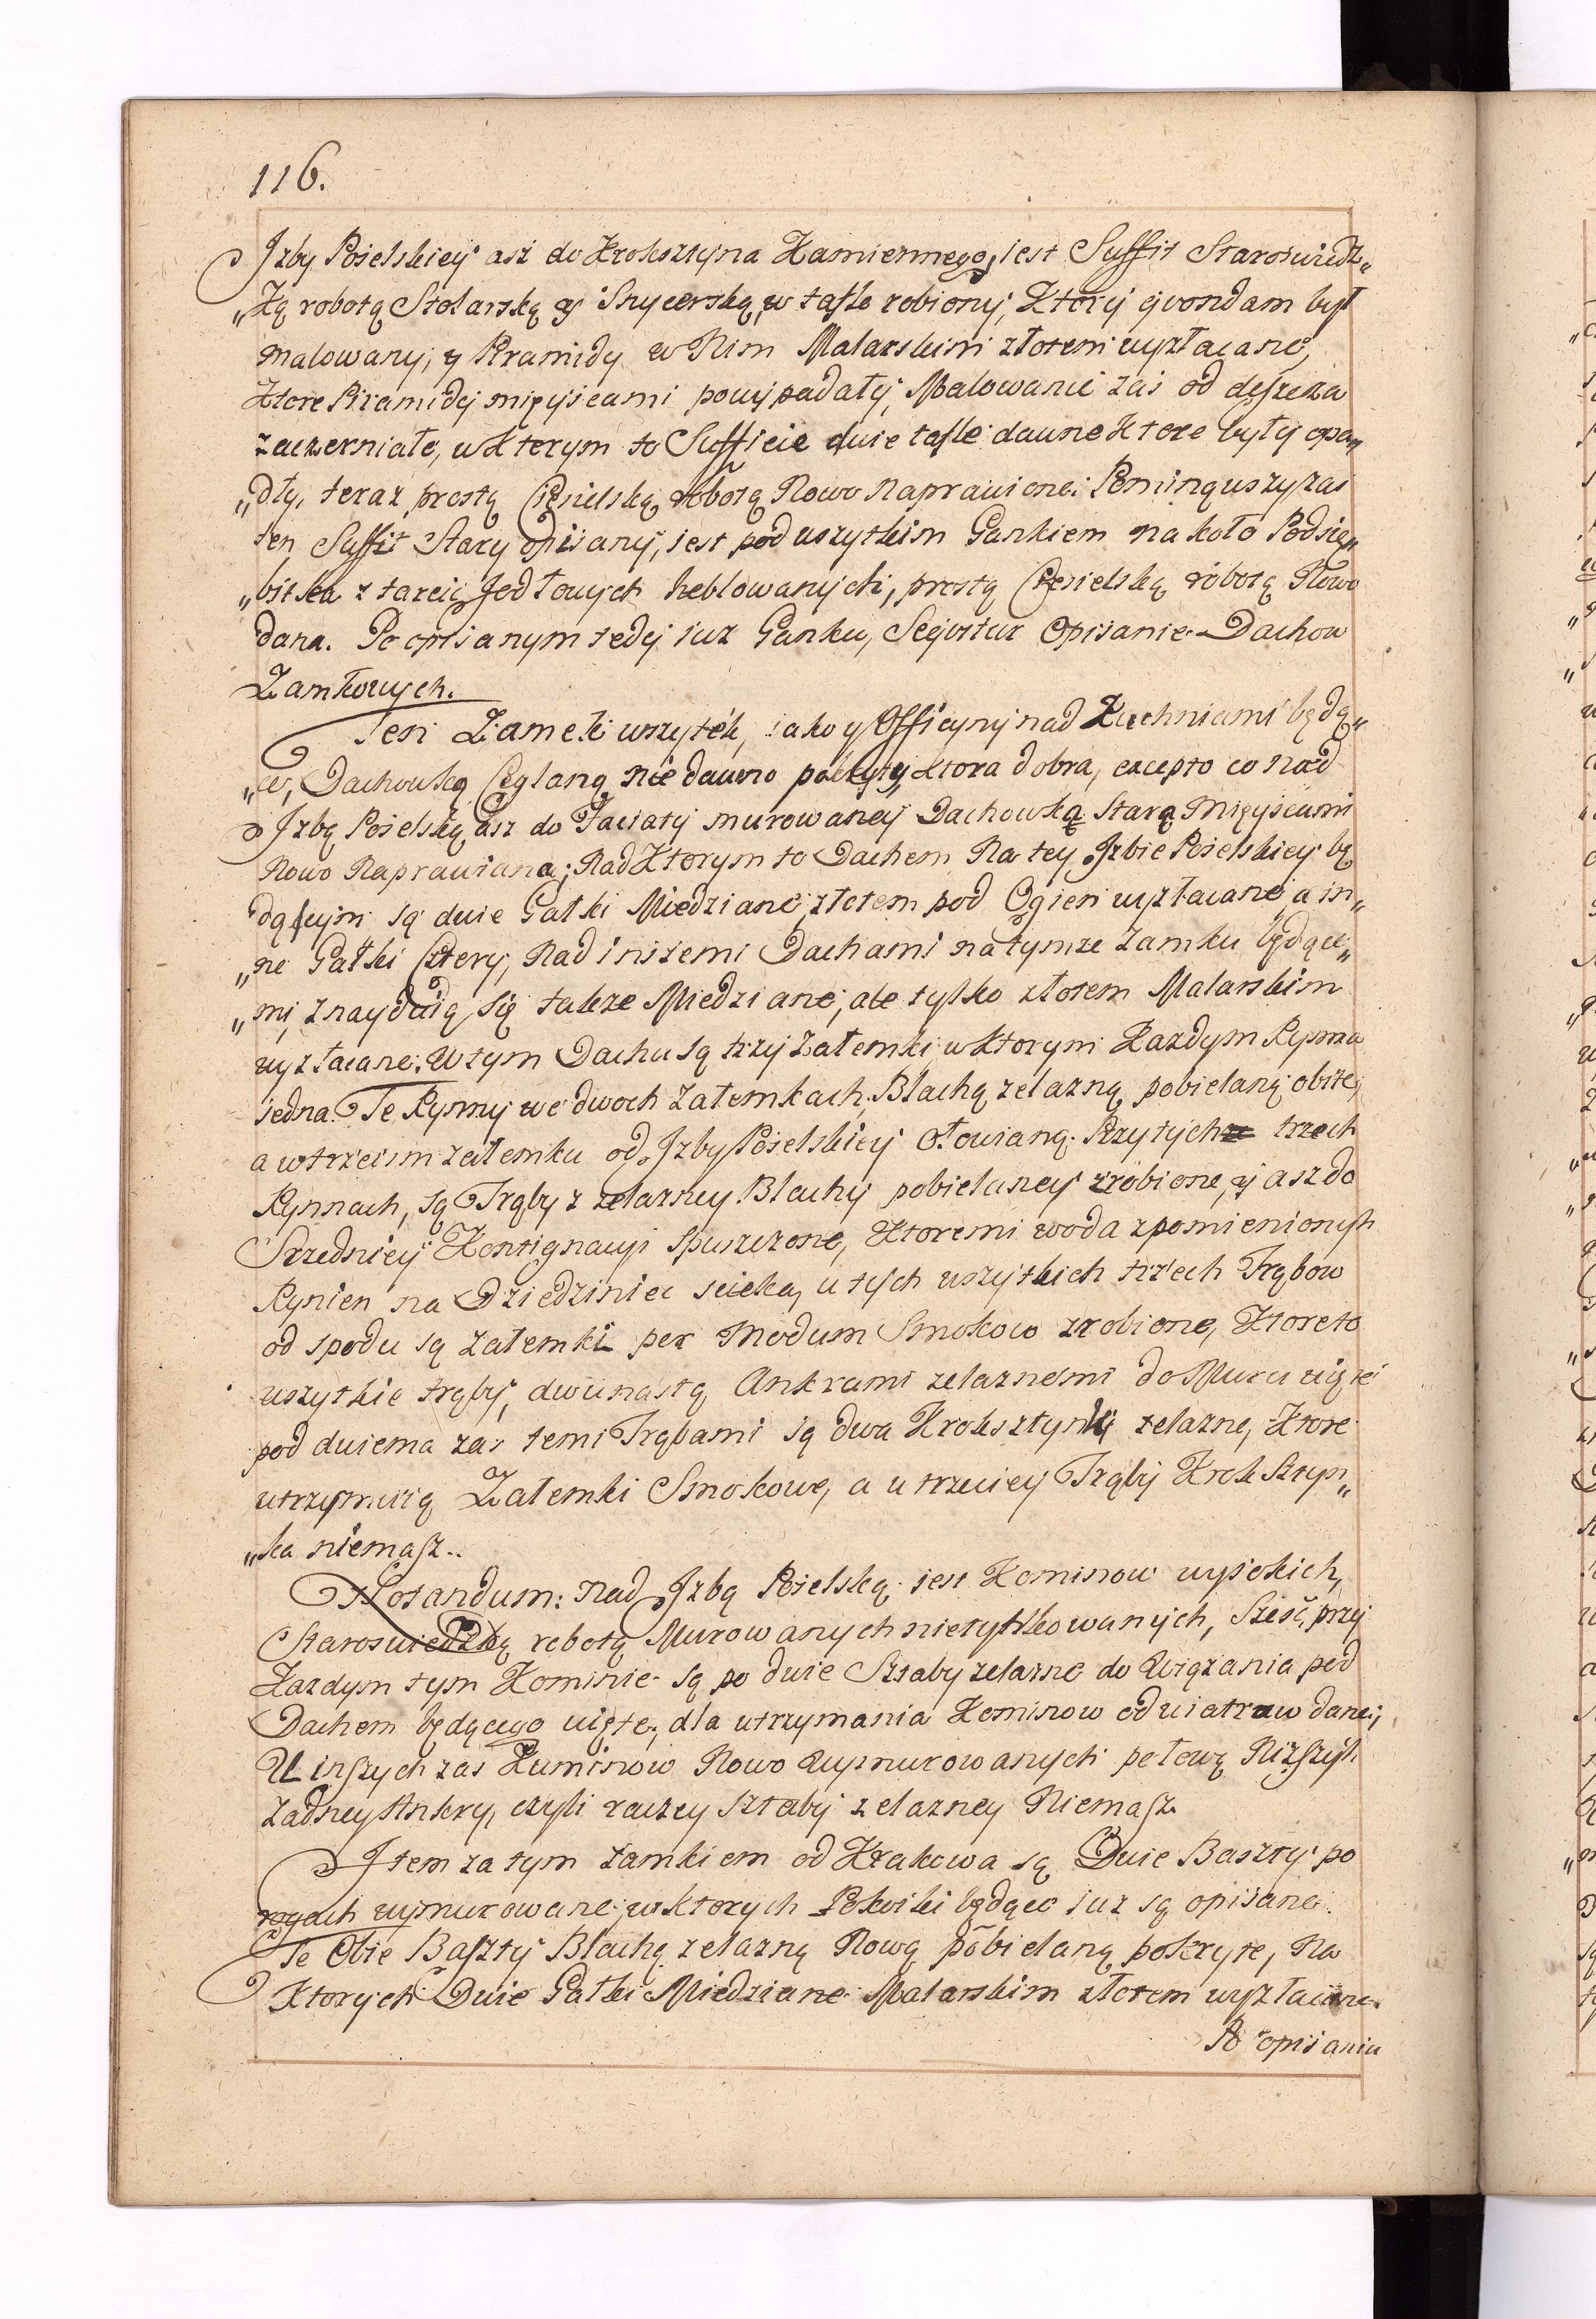 116.
Jzby Poselskiey asz do Kroksztyna Kamiennego, jest Suffit Staroswiedz„
„ką robotą Stolarską y Snycerską, w tafle robiony, Ktory qvondam był
malowany, y Piramidy w Nim Malarskim złotem wyzłacane,
Ktore Piramidy mieyscami powypadały, Malowanie zas od deszcza
zaczerniałe, w Kterym to Sufficie dwie tafle dawne Ktore były opa„
„dły, teraz prostą Ciesielską robotą Nowo Naprawione. Pominąwszy zas
ten Suffit Stary opisany, jest pod wszytkim Gankiem na koło Podsię„
„bitka z tarcic Jodłowych heblowanych, prostą Ciesielską robotą Nowo
dana. Po opisanym tedy iuz Ganku, Seqvitur Opisanie Dachow
Zamkowych.
Ten Zamek wszytek, iako y Officyny nad Kuchniami będą„
„ce, Dachowką Ceglaną nie dawno pokryty, Ktora dobra, excepto co nad
Jzbą Poselską asz do Faciaty murowaney Dachowką Starą Mieyscami
Nowo Naprawiana; Nad Ktorym to Dachem Na tey Jzbie Poselskiey bę
dącym są dwie Gałki Miedziane, złotem pod Ogien wyzłacane, a in„
„ne Gałki Cztery, Nad inszemi Dachami na tymze Zamku będące„
„mi, znayduią się takze Miedziane, ale tylko złotem Malarskim
wyzłacane. W tym Dachu są trzy Załemki, w Ktorym Kazdym Rynna
iedna. Te Rynny we dwoch Załemkach, Blachą zelazną pobielaną obite,
a w trzecim załemku od Jzby Poselskiey Ołowianą. Przy tych trzech
Rynnach, są Trąby z zelazney Blachy pobielaney zrobione, y asz do
Srzedniey Kontignacyi spuszczone, Ktoremi woda z pomienionych
Rynien na Dziedziniec scieka, u tych wszytkich trzech Trąbow
od spodu są załemki per Modum Smokow zrobione, Ktore to
wszytkie trąby, dwunastą Ankrami zelaznemi do Muru uięte
pod dwiema zas temi Trąbami są dwa Kroksztynki zelazne, Ktore
utrzymuią Załemki Smokowe, a u trzeciey Trąby Kroksztyn„
„ka niemasz..
Notandum: Nad Jzbą Poselską jest Kominow wysokich,
Staroswiedzką robotą Murowanych nietynkowanych, Szesć, przy
Kazdym tym Kominie są po dwie Sztaby zelazne do Wiązania pod
Dachem będącego uięte, dla utrzymania Kominow od wiatrow dane;
U inszych zas Kuminow Nowo Wymurowanych połową Nizszych
zadney Ankry, czyli raczey sztaby zelazney Niemasz.
Jtem za tym zamkiem od Krakowa są Dwie Baszty po
rogach wymurowane, w Ktorych Pokoiki będące iuz są opisane.
Te Obie Baszty Blachą zelazną Nową pobielaną pokryte, Na
Ktorych Dwie Gałki Miedziane Malarskim złotem wyzłacane.
Po opisaniu